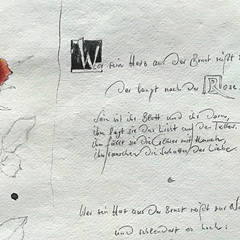 Wer sein Herz aus der Brust reißt z
Der langt nach der Rose.
Sein ist ihr Blatt und ihr Dorn,
ihm legt sie das Licht auf den Teller,
ihm füllt sie die Gläser mit Hauch,
ihm rauschen die Schatten der Liebe.
Wer sein Herz aus der Brust reißt zur Na
und schleudert es hoch: